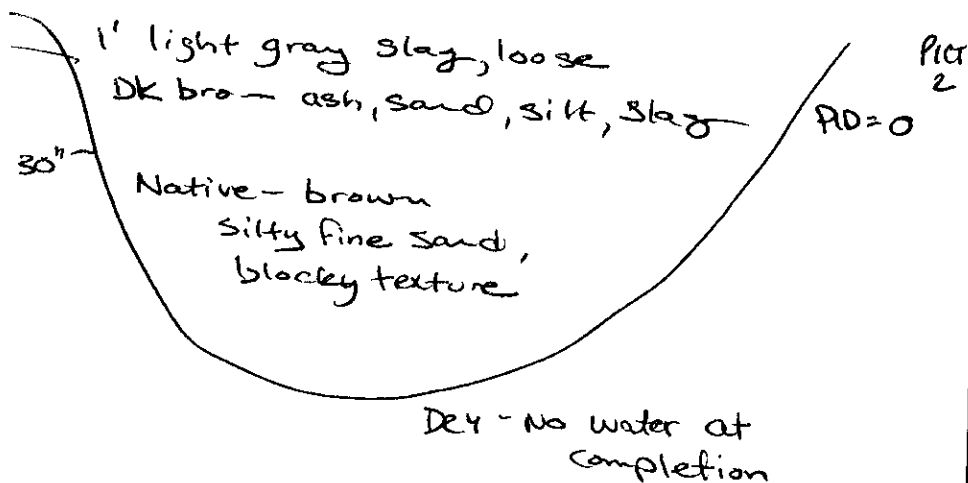 1' light gray slag, loose
PICT
2
DK bro— ash, sand, silt, slag
PID = 0
30"
Native - brown
silty fine sand,
blocky texture
Dry - No water at
completion